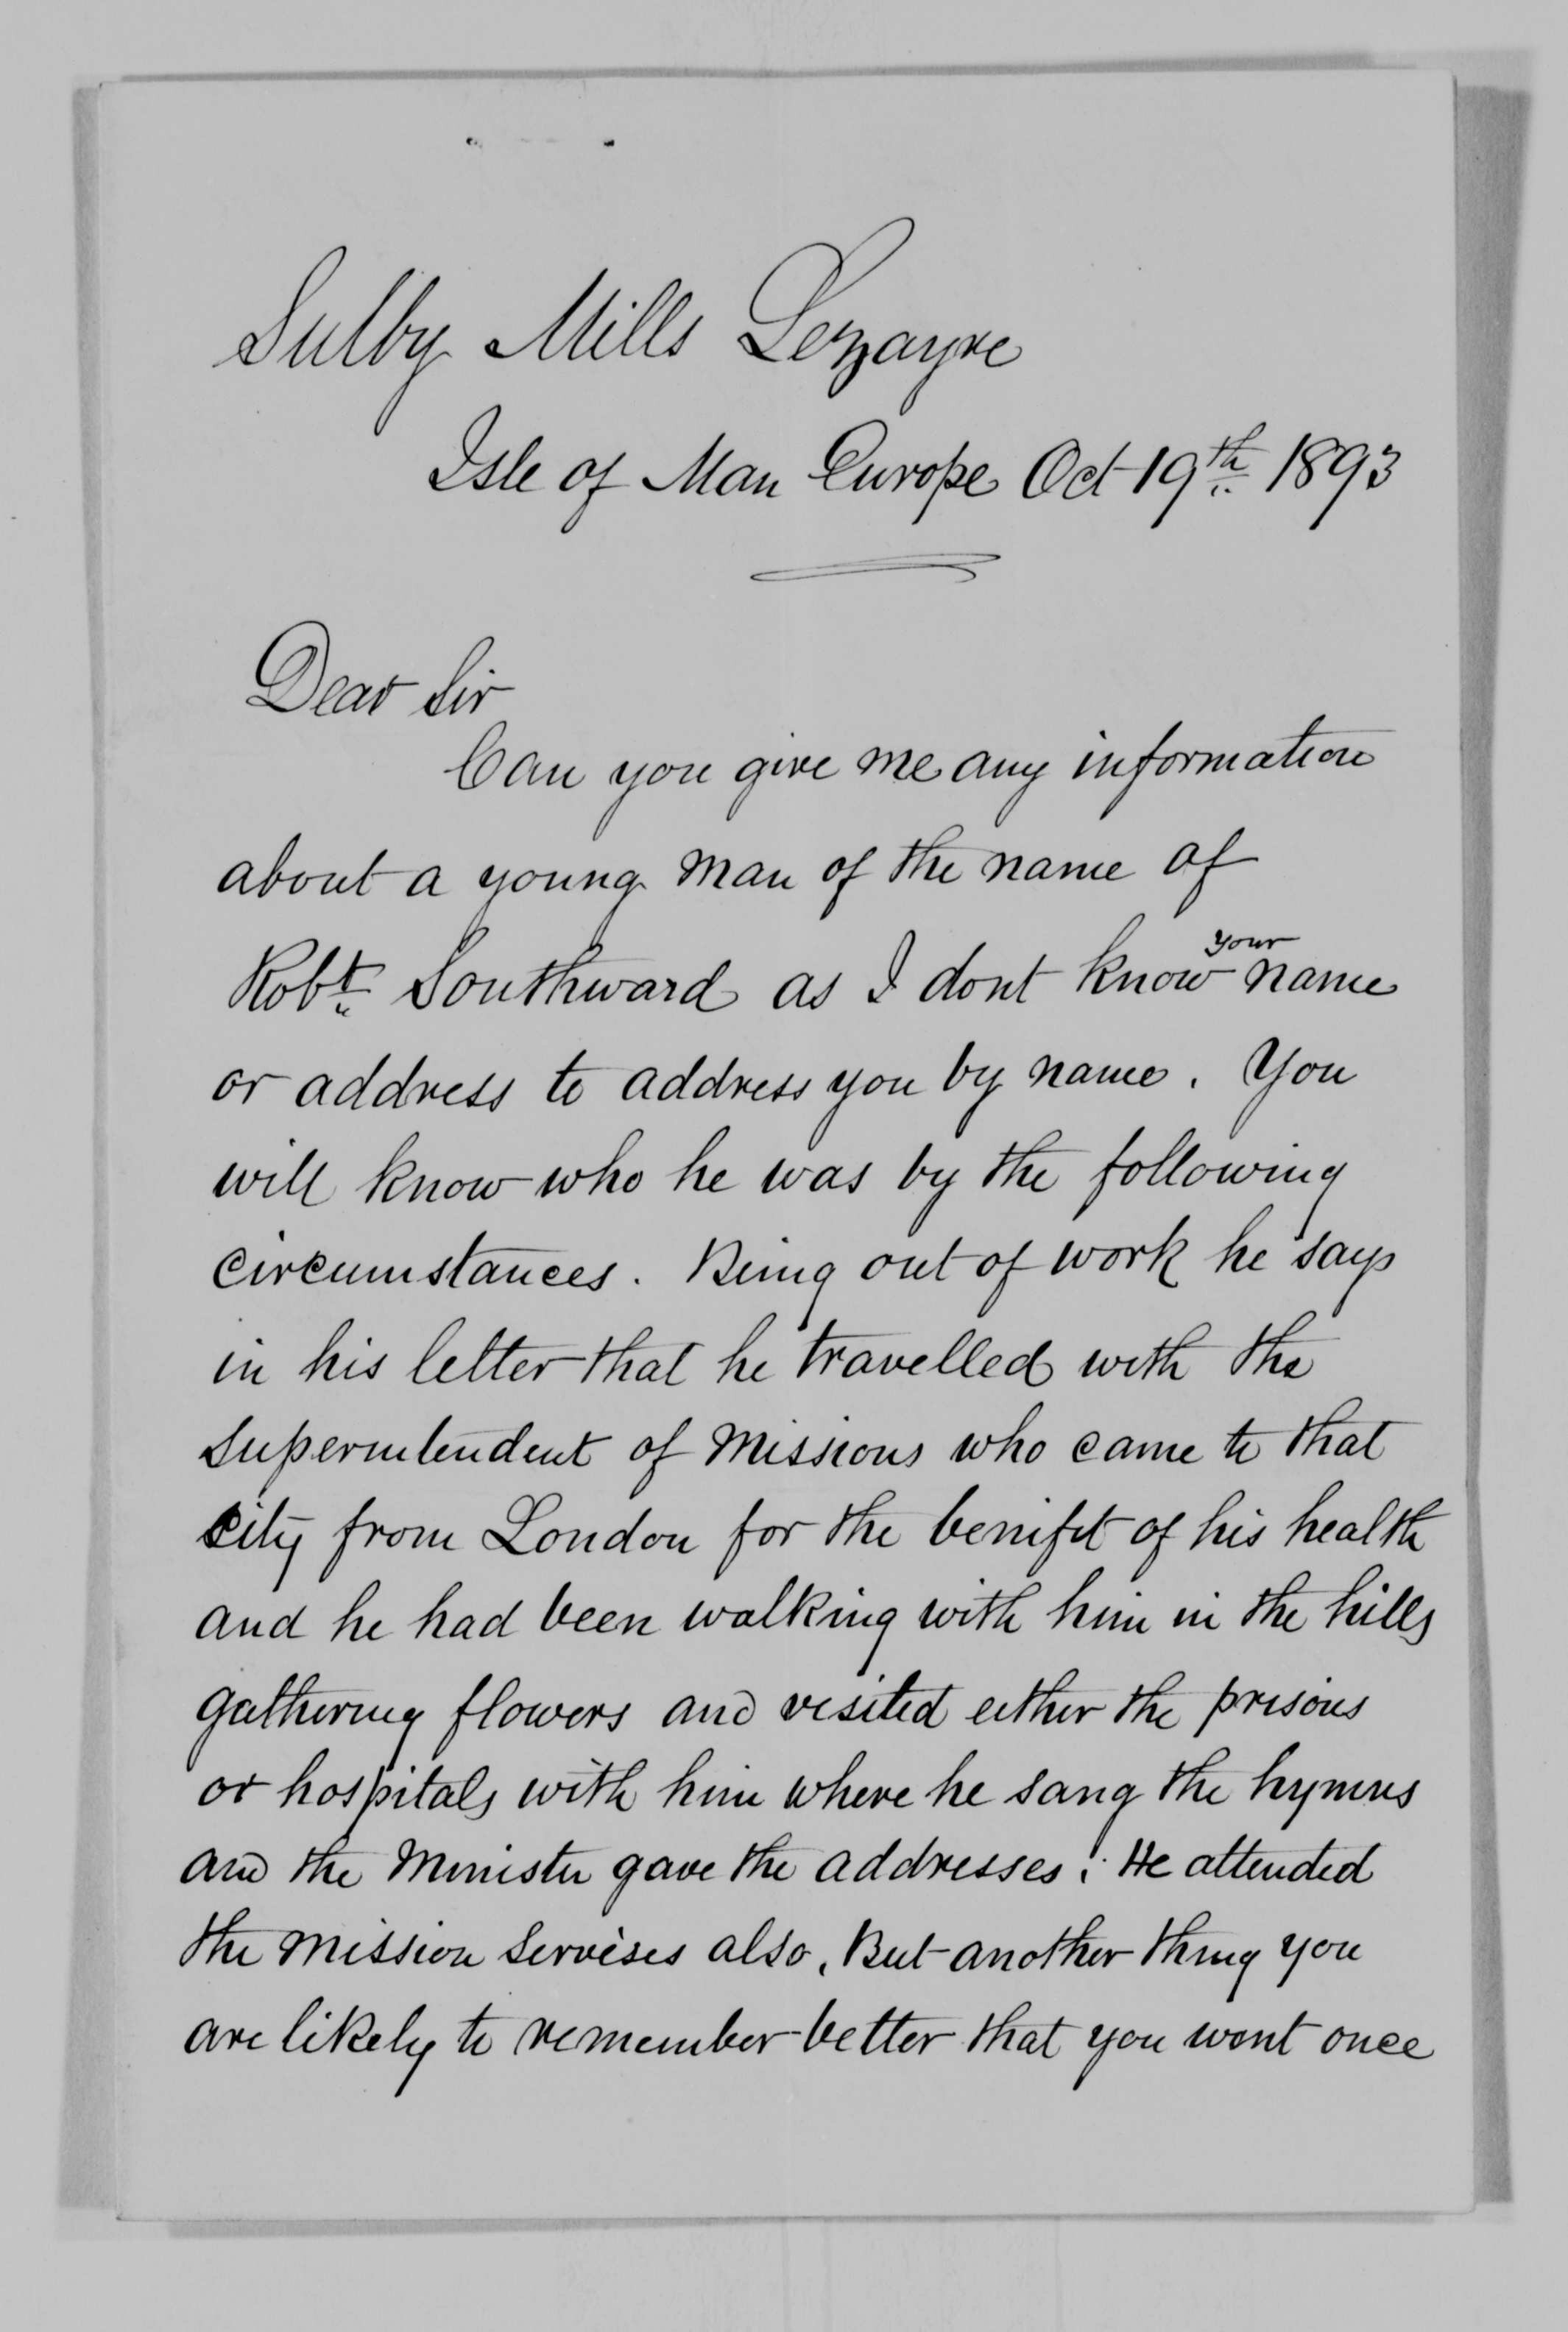 Sulby Mills Lezayre
Isle of Man Europe Oct 19th 1893
Dear Sir
Can you give me any information
about a young man of the name of
Robt Southward as I dont know your name
or address to address you by name. You
will know who he was by the following
circumstances. Being out of work he says
in his letter that he travelled with the
superintendent of missions who came to that
city from London for the benifit of his health
and he had been walking with him in the hills
gathering flowers and visited either the prisons
or hospitals with him where he sang the hymns
and the Minister gave the addresses. He attended
the mission servises also. But another thing you
are likely to remember better that you went once